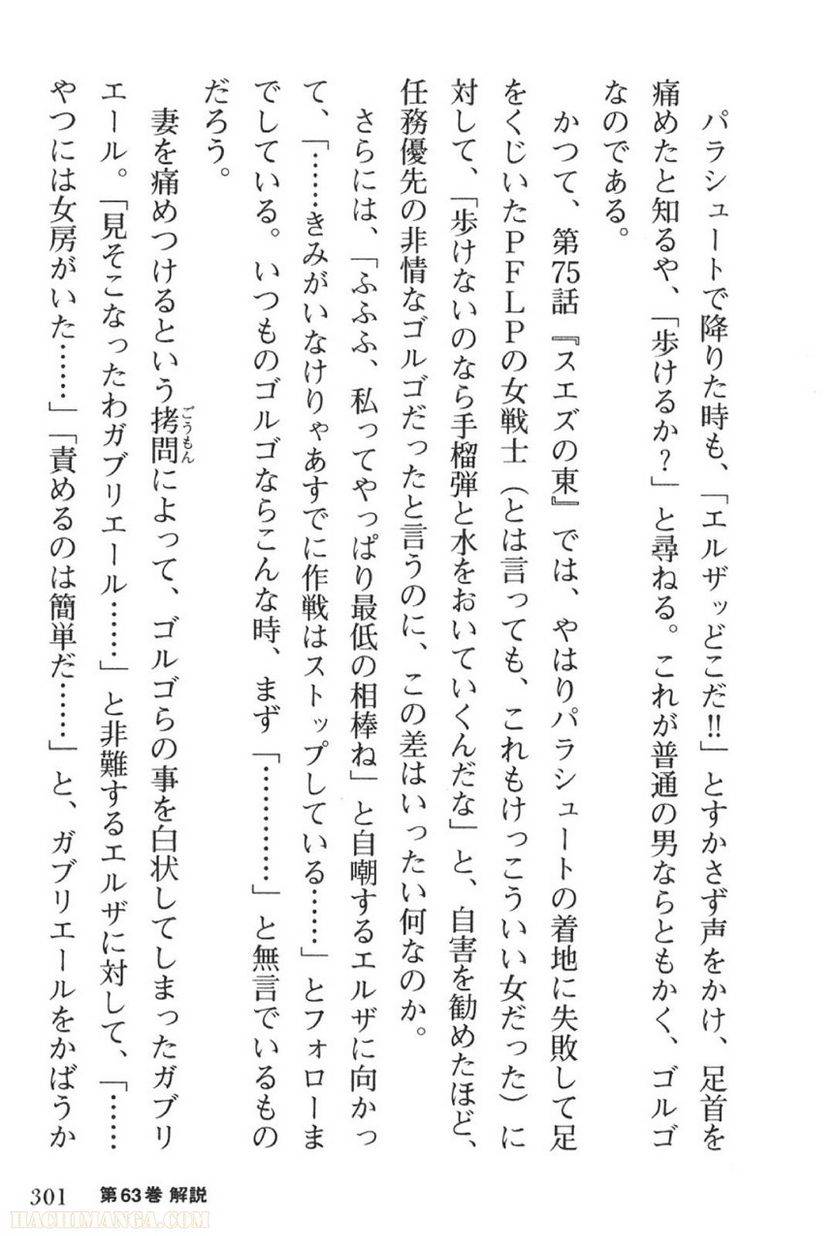 パラシュートで降りた時も、「エルザッどこだ!!」とすかさず声をかけ、足首を
痛めたと知るや、「歩けるか?」と尋ねる。これが普通の男ならともかく、ゴルゴ
なのである。
かつて、第75話『スエズの東』では、やはりパラシュートの着地に失敗して足
をくじいたPFLPの女戦士（とは言っても、これもけっこういい女だった）に
対して、「歩けないのなら手榴弾と水をおいていくんだな」と、自害を勧めたほど、
任務優先の非情なゴルゴだったと言うのに、この差はいったい何なのか。
さらには、「ふふふ、私ってやっぱり最低の相棒ね」と自嘲するエルザに向かっ
て、「……きみがいなけりゃあすでに作戦はストップしている……」とフォローま
でしている。いつものゴルゴならこんな時、まず「…………」と無言でいるもの
だろう。
妻を痛めつけるという拷問ごうもんによって、ゴルゴらの事を白状してしまったガブリ
エール。「見そこなったわガブリエール……」と非難するエルザに対して、「……
やつには女房がいた……」「責めるのは簡単だ……」と、ガブリエールをかばうか
301 第63巻 解説
HACHIMANGA.COM